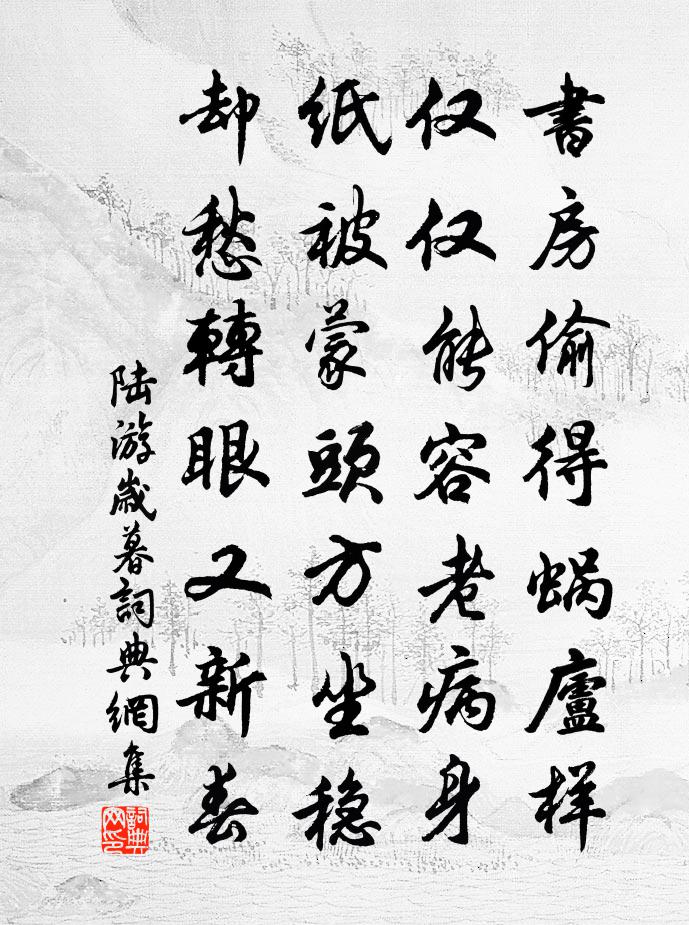 書房偷得蜗廬样
仅仅能容老病身
纸被蒙頭方坐稳
却愁轉眼又新春
陆游歲暮詞典網集
詞典網印